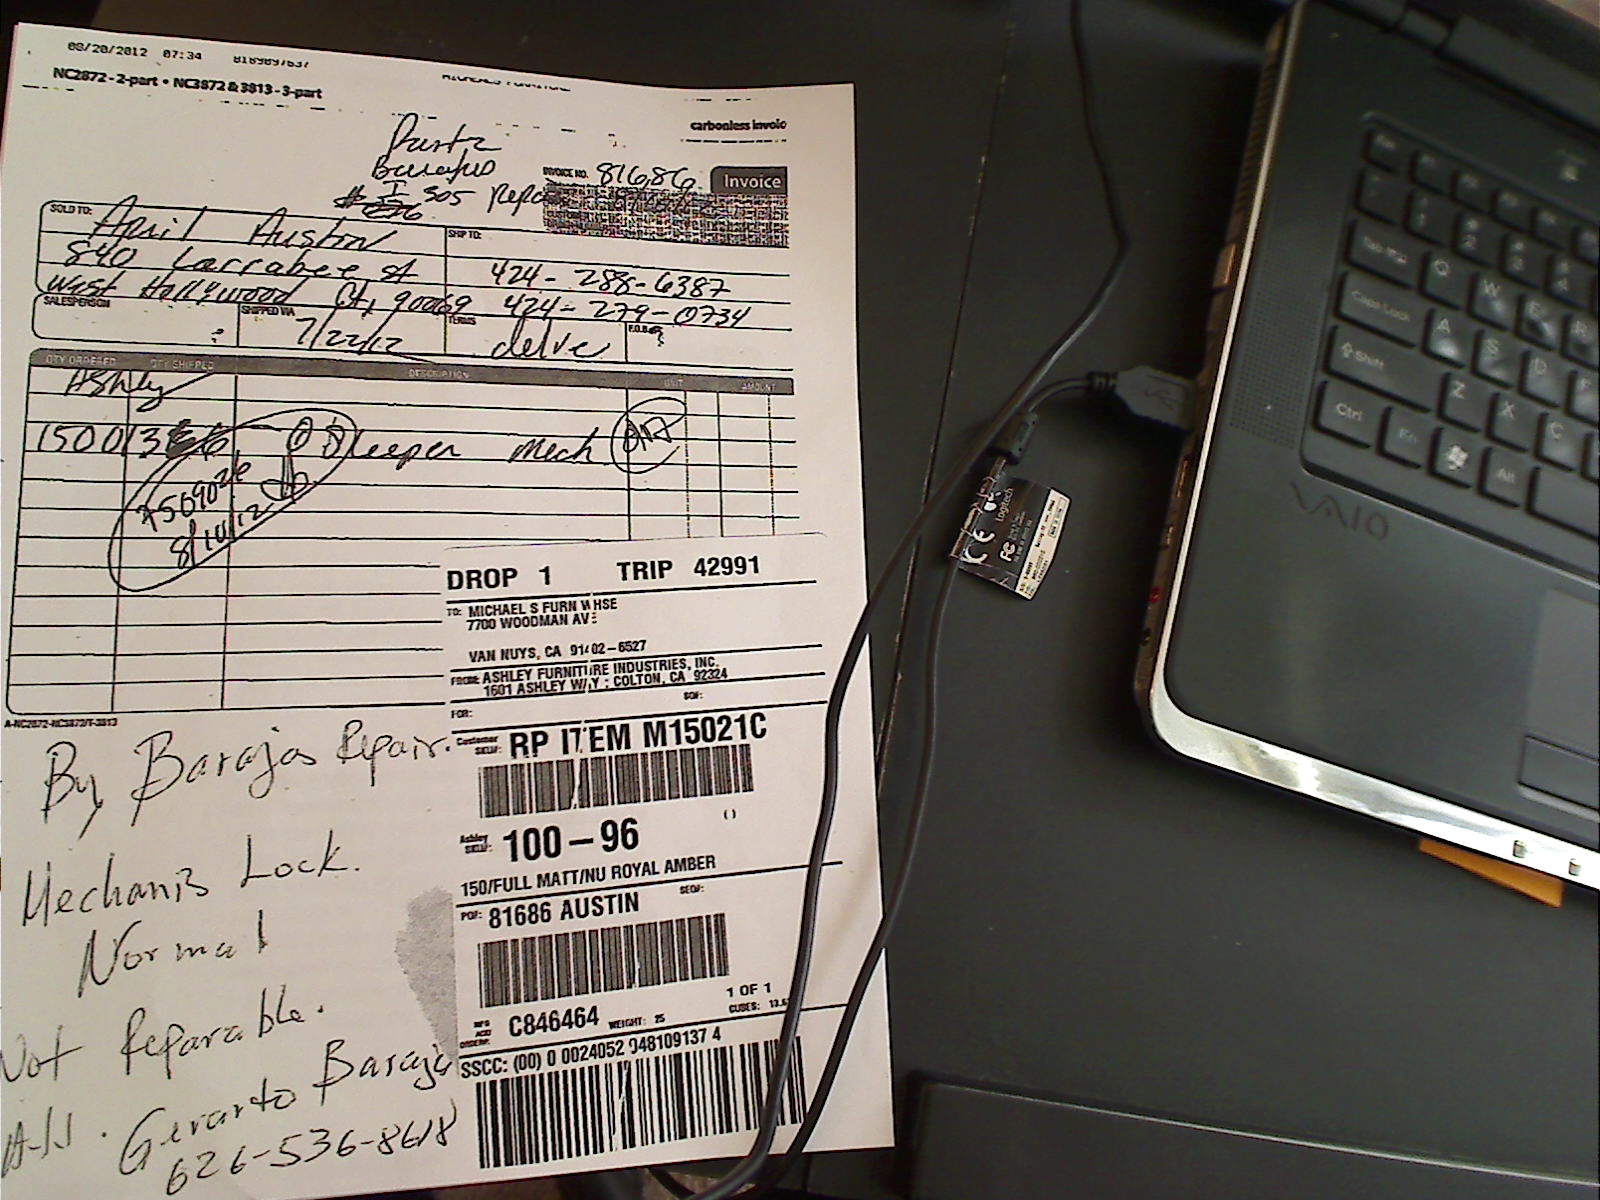 08/20/2012 07:34 8189897637
NC2872 - 2-part • NC3872 & 3813 - 3-part
carbonless invoic
Barajas
INVOICE NO. 81686 Invoice
305 Repa
SOLD TO: April Austin
SHIP TO:
840 Larrabee st 424-288-6387
West Hollywood 90069 424-279-0734
SALESPERSON SHIPPED VIA 7/22/12 TERMS F.O.B.
QTY ORDERED QTY SHIPPED DESCRIPTION UNIT AMOUNT
Ashley
Sleeper Mech
8/10/12
A-NC2872-NC3872/T-3813
DROP 1 TRIP 42991
TO: MICHAEL S FURN WHSE
7700 WOODMAN AVE
VAN NUYS, CA 91402-6527
FROM: ASHLEY FURNITURE INDUSTRIES, INC.
1601 ASHLEY WAY : COLTON, CA 92324
SO#:
FOR:
Customer SKU#: RP ITEM M15021C
Ashley SKU#: 100-96 ( )
150/FULL MATT/NU ROYAL AMBER
PO#: 81686 AUSTIN SEQ#:
1 OF 1
C846464 WEIGHT: 25 CUBES:
SSCC: (00) 0 0024052 048109137 4
By Barajas Repair.
Mechanis Lock.
Normal
Not Reparable.
Gerarto Baraja
626-536-8618
Logitech
CE
FC
VAIO
Tab
Q
W
E
R
Caps Lock
A
S
D
F
Shift
Z
X
C
Ctrl
Fn
Alt